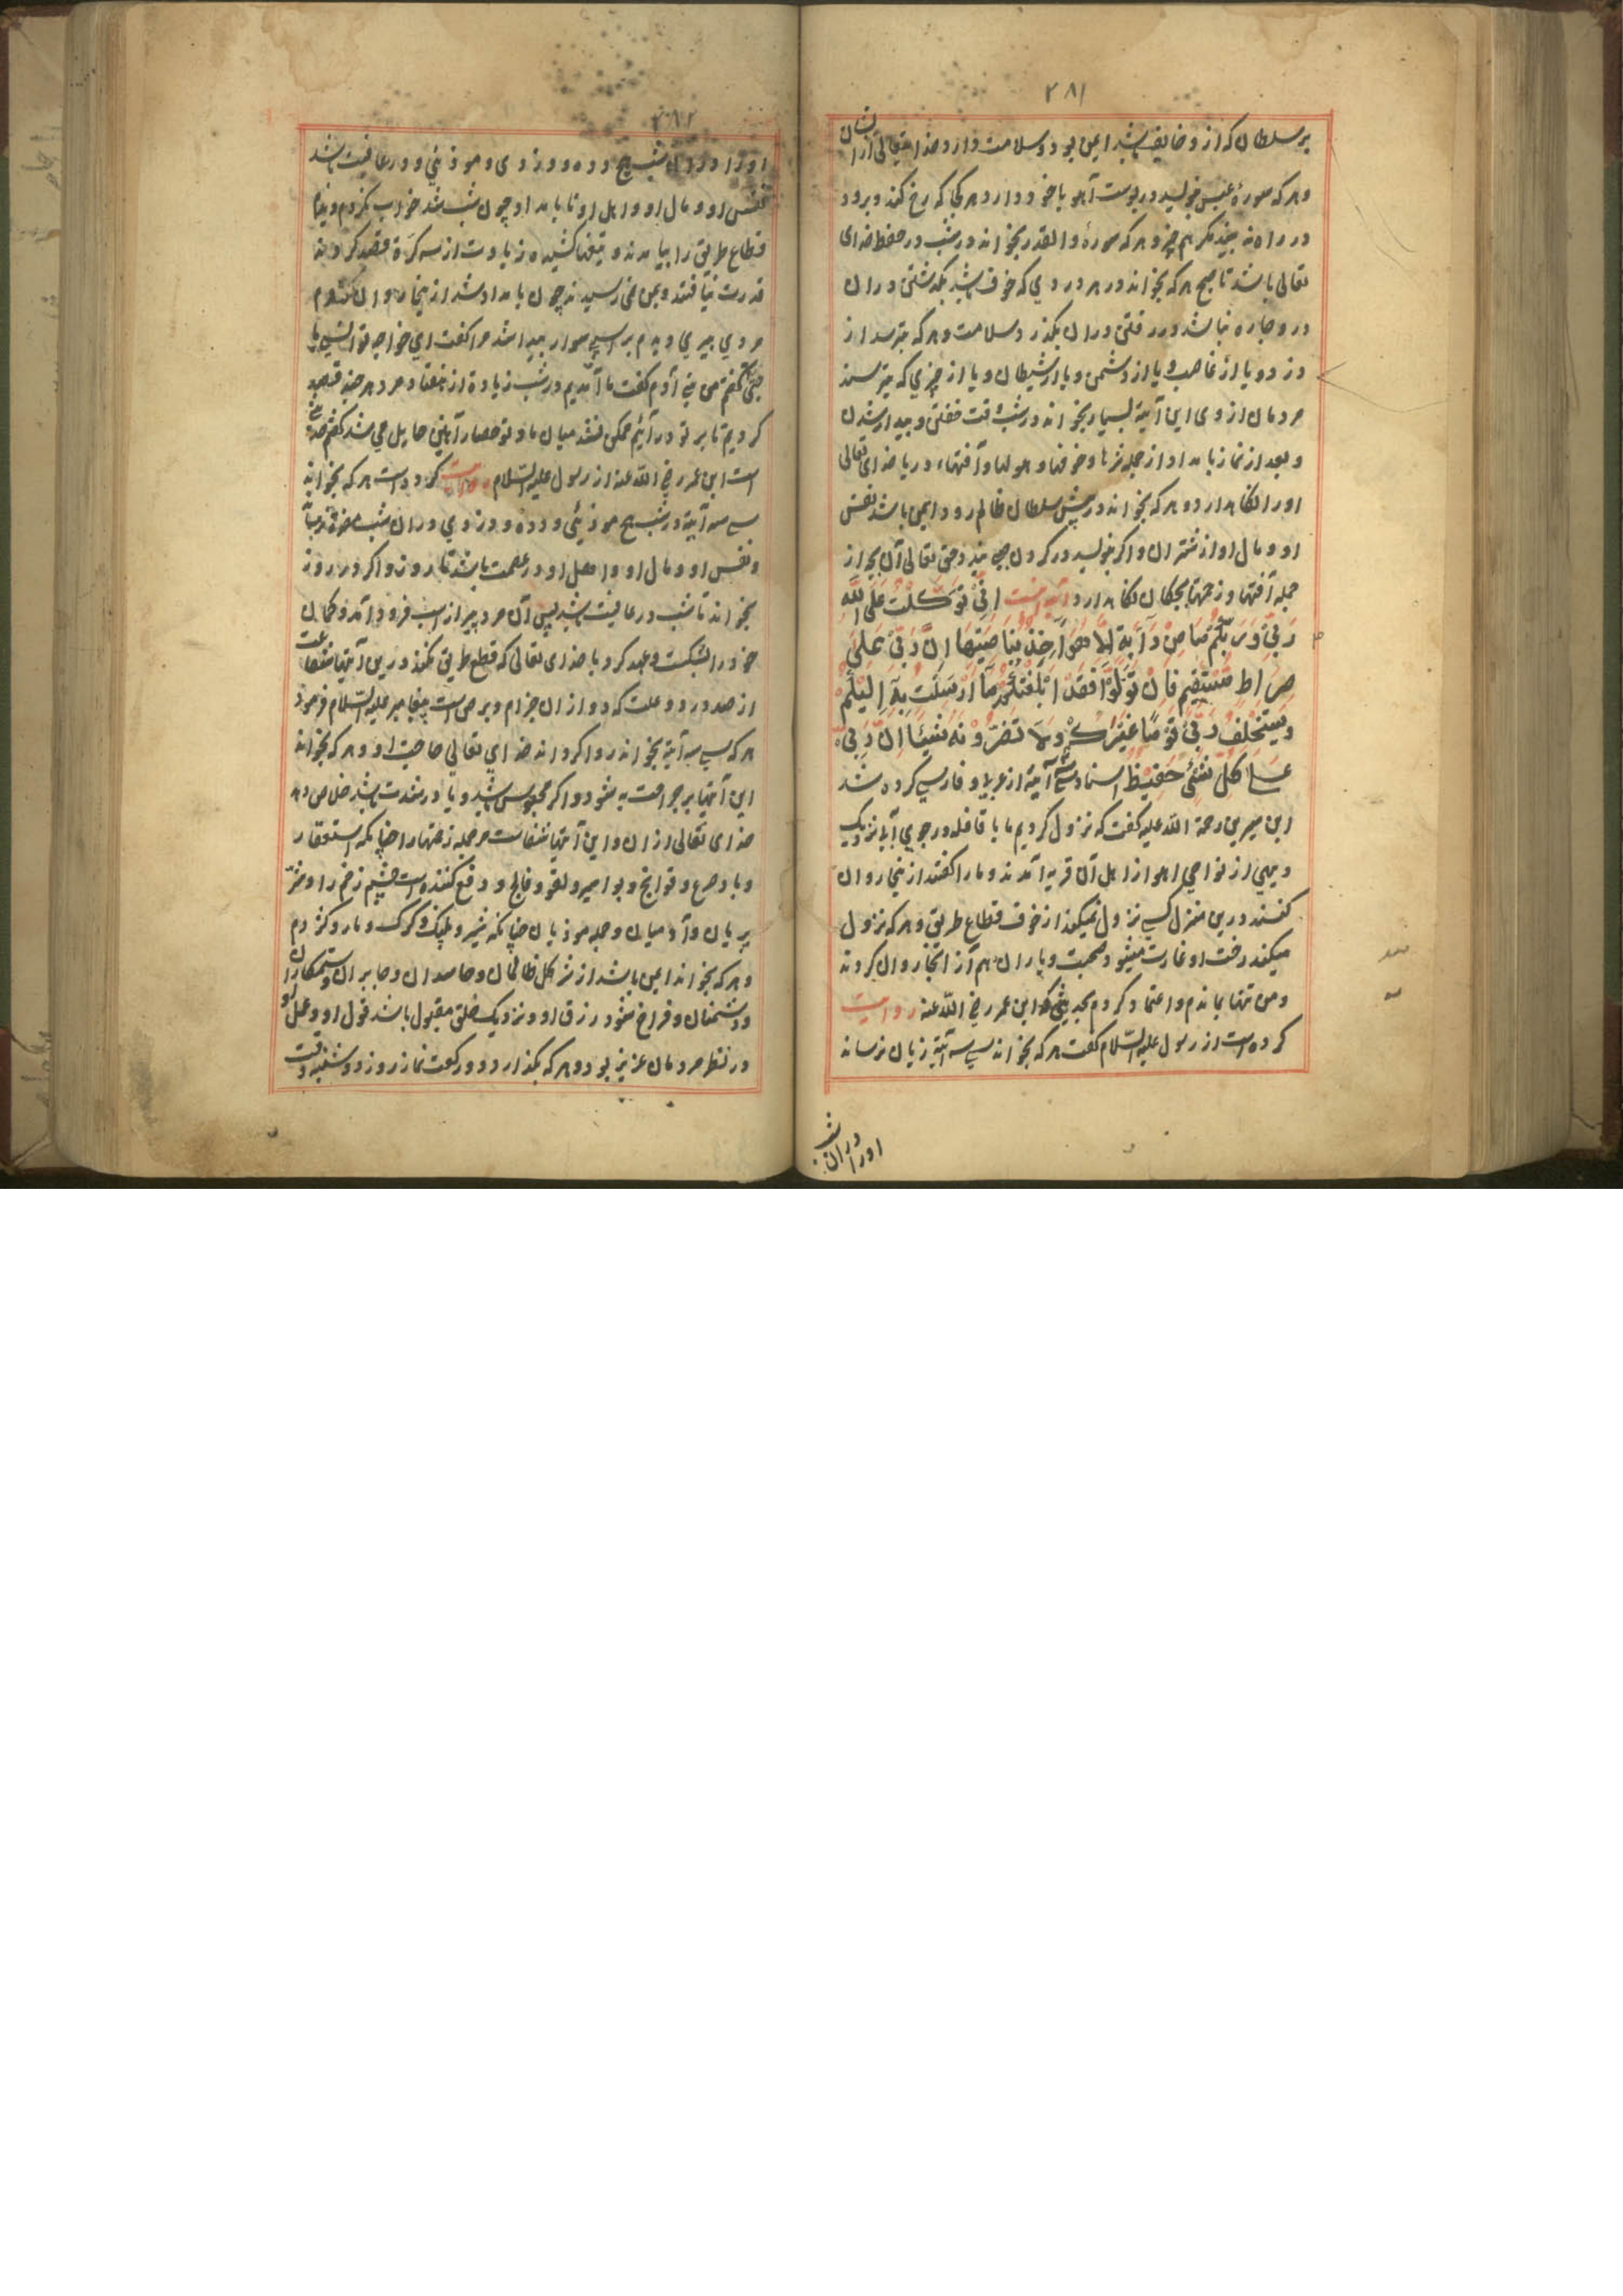 ۲۸۱
بر سلطان که ازو خایف باشد ایمن بود و سلامت دارد خدایتعالی از ایشان
و هر که سورهٔ عبس بنویسد در پوست آهو با خود دارد هر کجا که رخ کند و برود
در راه نه بیند مگر هم خیر و هر که سورهٔ والقدر بخواند در شب در حفظ خدای
تعالی باشد تا صبح هر که بخواند در هر دردی که خوف باشد بگذشتن دران
در و چاره نباشد در رفتن دران بگذرد سلامت و هر که بترسد از
دزد و یا از غاصب و یا از دشمن و یا از شیطان و یا از چیزی که بترسند
مردمان ازوی این آیة بسیار بخواند در شب وقت خفتن و بیدار شدن
و بعد از نماز بامداد از جمله شرها و خوفها و هولها و آفتهاء دریا خدای تعالی
او را نگاهدارد و هر که بخواند در پیش سلطان ظالم رود ایمن باشد نفس
او و مال او از شر آن و اگر بنویسد در گردن صبی بندد حق تعالی آن بچه از
جمله آفتها و زحمتها بچگان نگاهدارد آیه اینست اِنِّی تَوَکَّلْتُ عَلَی اللّٰهِ
رَبِّی وَرَبِّکُمْ مَا مِنْ دَآبَّةٍ اِلَّا هُوَ آخِذٌ بِنَاصِیَتِهَا اِنَّ رَبِّی عَلٰی
صِرَاطٍ مُسْتَقِیمٍ فَاِنْ تَوَلَّوْا فَقَدْ اَبْلَغْتُکُمْ مَا اُرْسِلْتُ بِهٖ اِلَیْکُمْ
وَیَسْتَخْلِفُ رَبِّی قَوْمًا غَیْرَکُمْ وَلَا تَضُرُّونَهُ شَیْئًا اِنَّ رَبِّی
عَلٰی کُلِّ شَیْءٍ حَفِیظٌ اسناد سی سه آیة از عربی و فارسی کرده شد
ابن سیرین رحمة الله علیه گفت که نزول کردیم ما با قافله در جوی آب نزدیک
دیهی از نواحی اهواز اهل آن قریه آمدند و ما را گفتند از ینجا روان
کنند درین منزل کسی نزول نمیکند از خوف قطاع طریق و هر که نزول
میکند رخت او غارت میشود صحبت و یاران هم آن از انجا روان کردند
و من تنها بماندم و اعتماد کردم بحدیثی که ابن عمر رضی الله عنه روایت
کرده است از رسول علیه السلام گفت هر که بخواند سی سه آیة زیان نرساند
او را دران شب
۲۸۲
او را دران شب هیچ دده و دزدی و موذیئی و در عافیت باشد
نفس او و مال او و اهل او تا بامداد چون شب شد خواب نکردم و دیدم
قطاع طریق را بیامدند و تیغها کشیده زیادت از سه کرة قصد کردند
قدرت نیافتند و بمن نمی رسیدند چون بامداد شد از ینجا روان شدم
مردی پیری دیدم بر اسپی سوار پیدا شد مرا گفت ای خواجه تو انسی یا
جنی گفتم من بنی آدم گفت ما آمدیم در شب زیادة از هفتاد مرد هر چند قصد
کردیم تا بر تو در آئیم ممکن نشد میان ما و تو حصار آهنین حایل می شد گفتم حدیثی
است ابن عمر رضی الله عنه از رسول علیه السلام روایت کرده است هر که بخواند
سی سه آیة در شب هیچ موذیئی و دده و دزدی دران شب مضرة نرساند
و نفس او و مال او و اهل او در عصمت باشد تا روز و اگر در روز
بخواند تا شب در عافیت باشد پس آن مرد پیر از اسپ فرود آمد و کمان
خود را بشکست و عهد کرد با خدای تعالی که قطع طریق نکند درین آیتها شفاعت
از صد درد و علت که دو ازان جزام و برص است پیغامبر علیه السلام فرمود
هر که سی سه آیة بخواند روا گرداند خدای تعالی حاجت او و هر که بخواند
این آیتها بر جراحت به شود و اگر محبوس باشد و یا در شدت باشد خلاص دهد
خدای تعالی ازان و این آیتها شفاست مر جمله زحمتها را چنانکه استسقا
و باد صرع و قولنج و بواسیر و لقوه و فالج و دفع کننده است چشم زخم را و شر
پریان و آدمیان و جمله موذیان چنانکه شیر و پلنگ و گرگ و مار و کژدم
و هر که بخواند ایمن باشد از شر کل ظالمان و حاسدان و جابران و ستمکاران
و دشمنان و فراخ شود رزق او و نزدیک خلق مقبول باشد قول او و عمل او
در نظر مردمان عزیز بود و هر که بگذارد دو رکعت نماز روز دوشنبه وقت